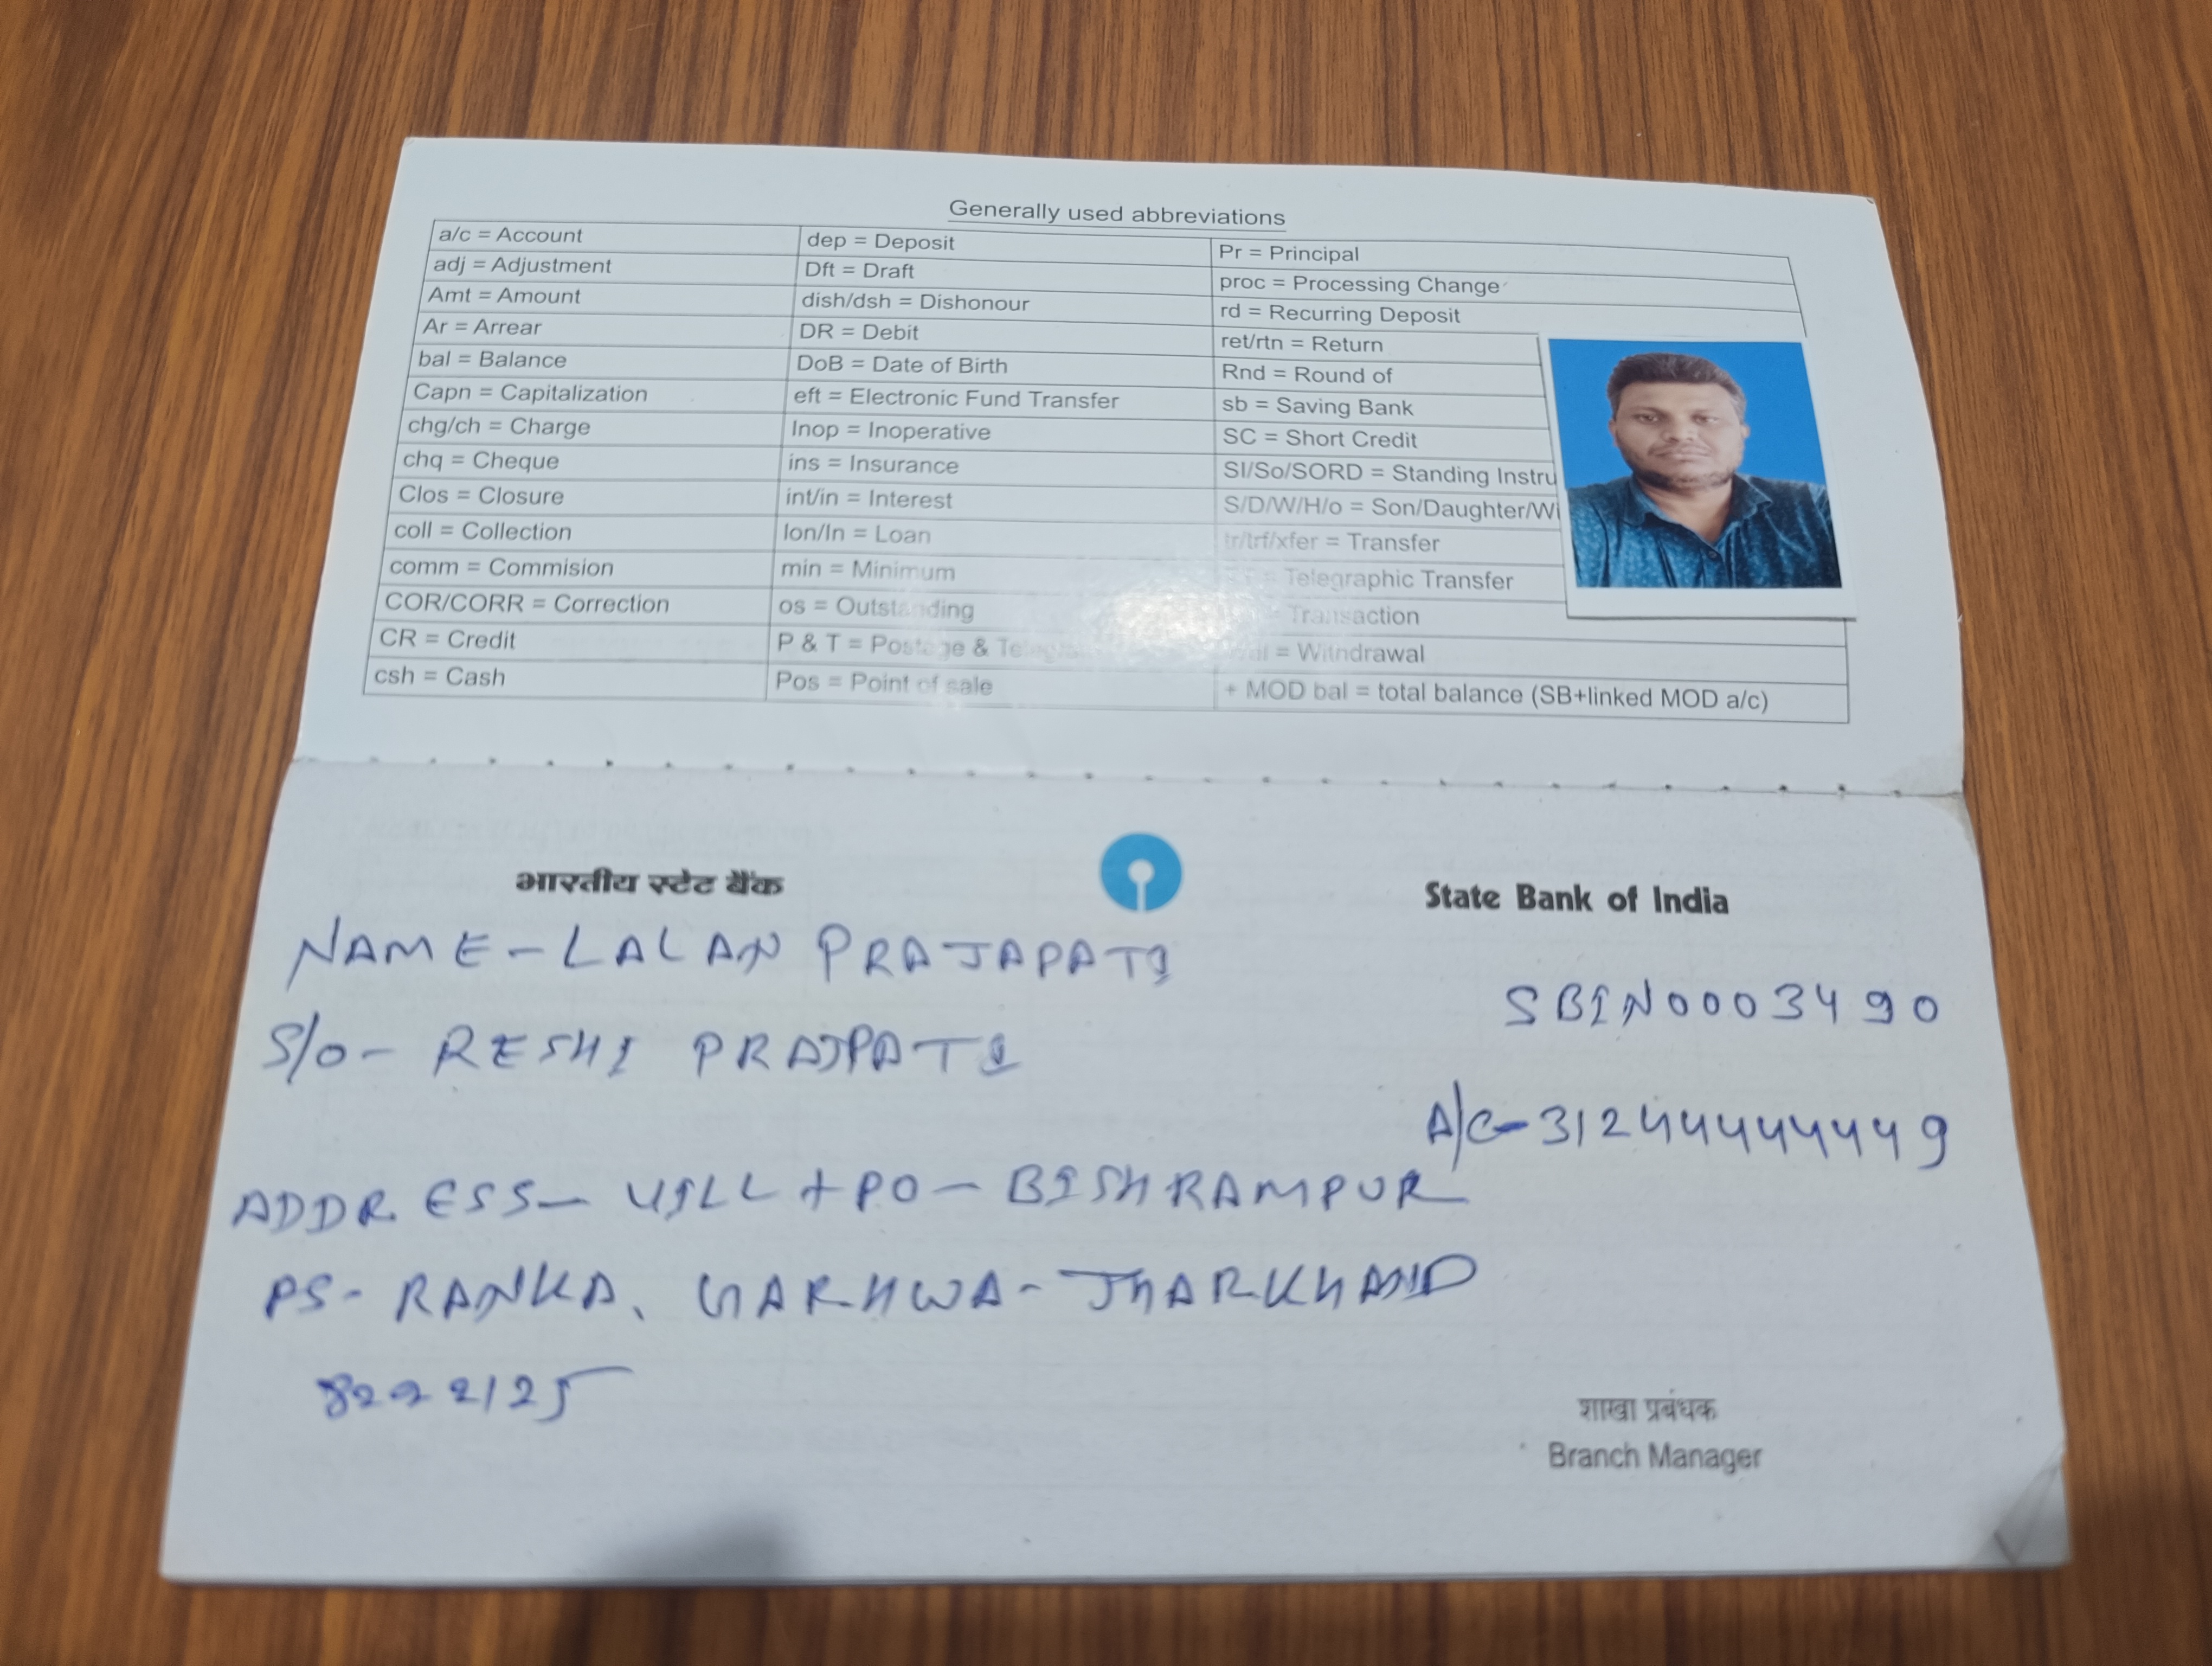 Generally used abbreviations
a/c = Account dep = Deposit Pr = Principal
adj = Adjustment Dft = Draft proc = Processing Change
Amt = Amount dish/dsh = Dishonour rd = Recurring Deposit
Ar = Arrear DR = Debit ret/rtn = Return
bal = Balance DoB = Date of Birth Rnd = Round of
Capn = Capitalization eft = Electronic Fund Transfer sb = Saving Bank
chg/ch = Charge Inop = Inoperative SC = Short Credit
chq = Cheque ins = Insurance SI/So/SORD = Standing Instru
Clos = Closure int/in = Interest S/D/W/H/o = Son/Daughter/Wi
coll = Collection lon/ln = Loan tr/trf/xfer = Transfer
comm = Commision min = Minimum = Telegraphic Transfer
COR/CORR = Correction os = Outstanding = Transaction
CR = Credit P & T = Postage & = Withdrawal
csh = Cash Pos = Point of sale + MOD bal = total balance (SB+linked MOD a/c)
भारतीय स्टेट बैंक State Bank of India
NAME - LALAN PRAJAPATI
SBIN0003490
S/O - RESHI PRAJPATI
A/C - 31244444449
ADDRESS - VILL + PO - BISHRAMPUR
PS - RANKA, GARHWA - JHARKHAND
8222125
शाखा प्रबंधक
Branch Manager